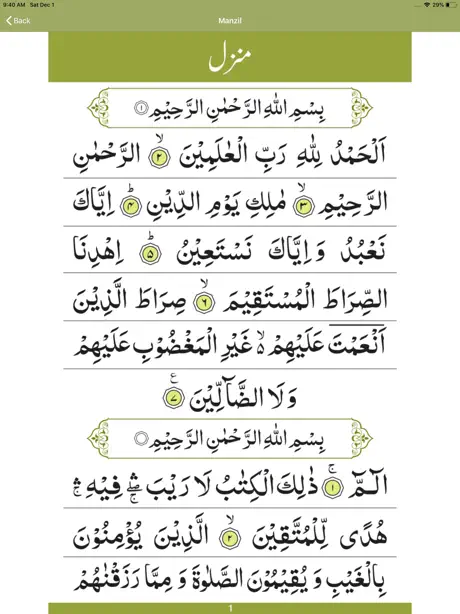 9:40 AM Sat Dec 1 29%
Back Manzil
منزل
بِسْمِ اللهِ الرَّحْمٰنِ الرَّحِيْمِ ۱
اَلْحَمْدُ لِلّٰهِ رَبِّ الْعٰلَمِيْنَ ۙ‏ ۲ الرَّحْمٰنِ
الرَّحِيْمِ ۙ‏ ۳ مٰلِكِ يَوْمِ الدِّيْنِ ؕ‏ ۴ اِيَّاكَ
نَعْبُدُ وَ اِيَّاكَ نَسْتَعِيْنُ ؕ‏ ۵ اِهْدِنَا
الصِّرَاطَ الْمُسْتَقِيْمَ ۙ‏ ۶ صِرَاطَ الَّذِيْنَ
اَنْعَمْتَ عَلَيْهِمْ ۙ۬ۥ غَيْرِ الْمَغْضُوْبِ عَلَيْهِمْ
وَ لَا الضَّآلِّيْنَ ۷ ع
بِسْمِ اللهِ الرَّحْمٰنِ الرَّحِيْمِ
الٓمّٓ ۚ‏ ۱ ذٰلِكَ الْكِتٰبُ لَا رَيْبَ ۛۖ فِيْهِ ۛ
هُدًى لِّلْمُتَّقِيْنَ ۙ‏ ۲ الَّذِيْنَ يُؤْمِنُوْنَ
بِالْغَيْبِ وَ يُقِيْمُوْنَ الصَّلٰوةَ وَ مِمَّا رَزَقْنٰهُمْ
1